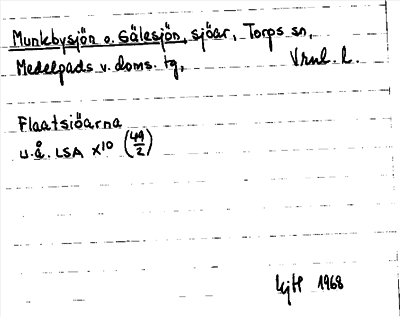 Munkbysjön o. Gälesjön, sjöar, Torps sn,
Medelpads v. doms. tg, Vrnl. l.
Flaatsiöarna
u.å. LSA X10 (49/2)
KjH 1968